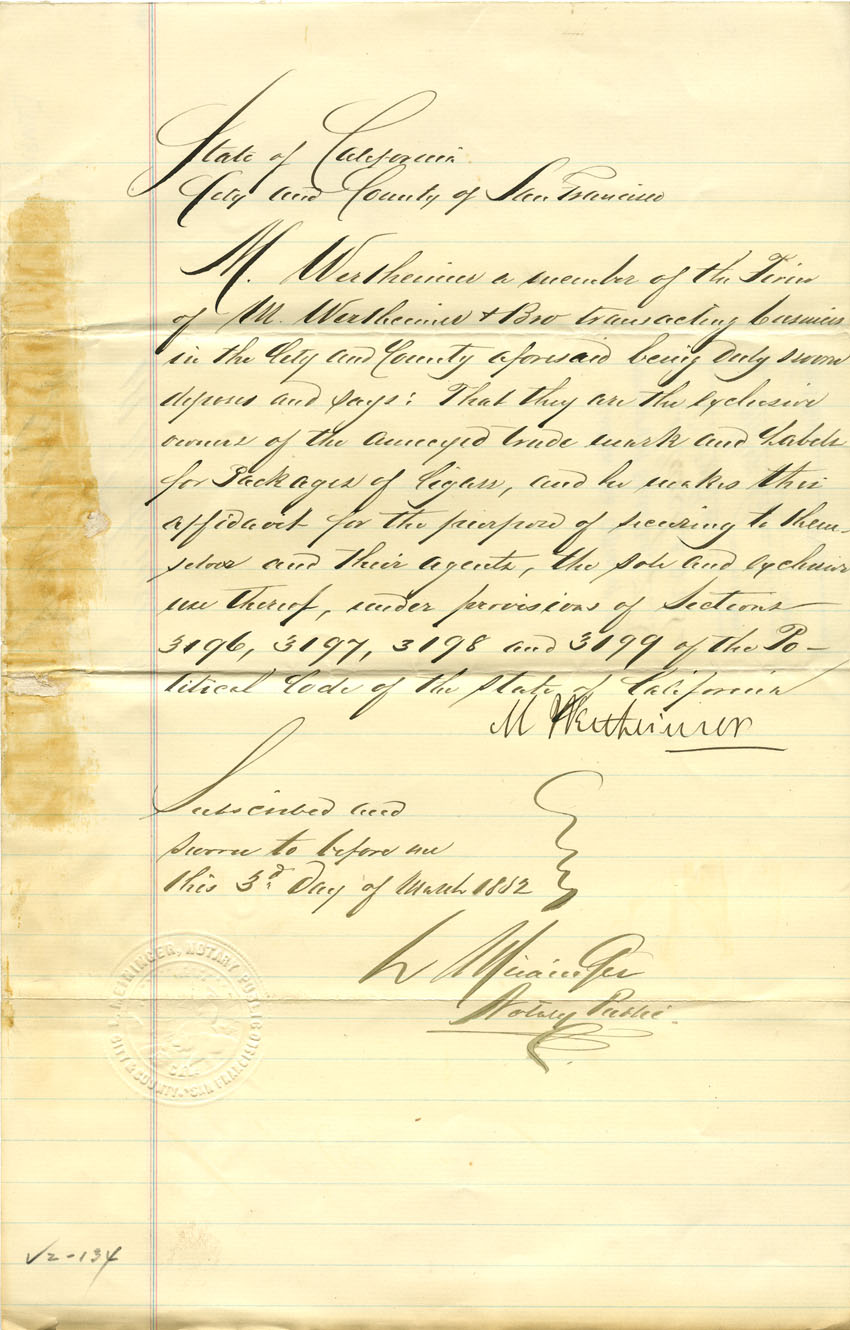 State of California
City and County of San Francisco
M. Wertheimer a member of the Firm
of M. Wertheimer & Bro transacting business
in the City and County aforesaid being duly sworn
deposes and says: That they are the exclusive
owners of the annexed trade mark and Labels
for Packages of Cigars, and he makes this
affidavit for the purpose of securing to them-
selves and their agents, the sole and exclusive
use thereof, under provisions of Sections
3196, 3197, 3198 and 3199 of the Po-
litical Code of the State of California
M Wertheimer
Subscribed and
sworn to before me
this 3d. Day of March 1882
L Meininger
Notary Public.
L. MEININGER, NOTARY PUBLIC
CITY & COUNTY SAN FRANCISCO
CAL.
V2-134